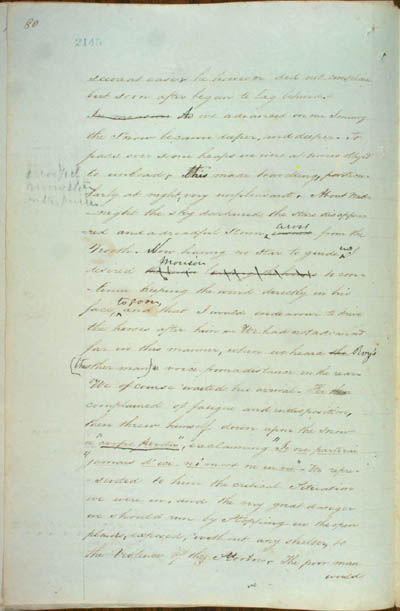 80
2145
servant easier he however did not complain
but soon after began to lag behind.
As we advanced on our Journey
the Snow became deeper, and deeper. To
pass over some heaps we were at times oblig'd
to unload; this made travelling, particu-
larly at night, very unpleasant. About Mid-
-night the Sky darkened the stars disappea-
red and a dreadful Storm arose from the
North. Now having no Star to guide us
desired Monson to con-
tinue keeping the wind directly in his
face, to go on, and that I would endeavour to drive
the horses after him. We had not advanced
far in this manner, when we heard Roy's
(the other man) voice from a distance in the rear
We of course waited his arrival. He
complained of fatigue and indisposition,
then threw himself down upon the Snow
a "corps perdu", exclaiming "Je ne partirai
"jamais d'ici, We repre-
-sented to him the critical Situation
we were in, and the very great danger
we should run by Stopping in the open
plain, exposed, without any shelter, to
the Violence of the Storm. The poor man
would